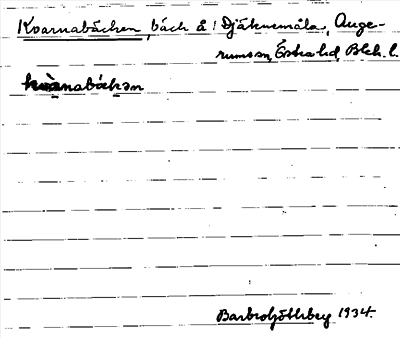 Kvarnabäcken, bäck å Djäknemåla, Auge-
rums sn, Östra hd, Blek. l.
kvànabäkən
1934.